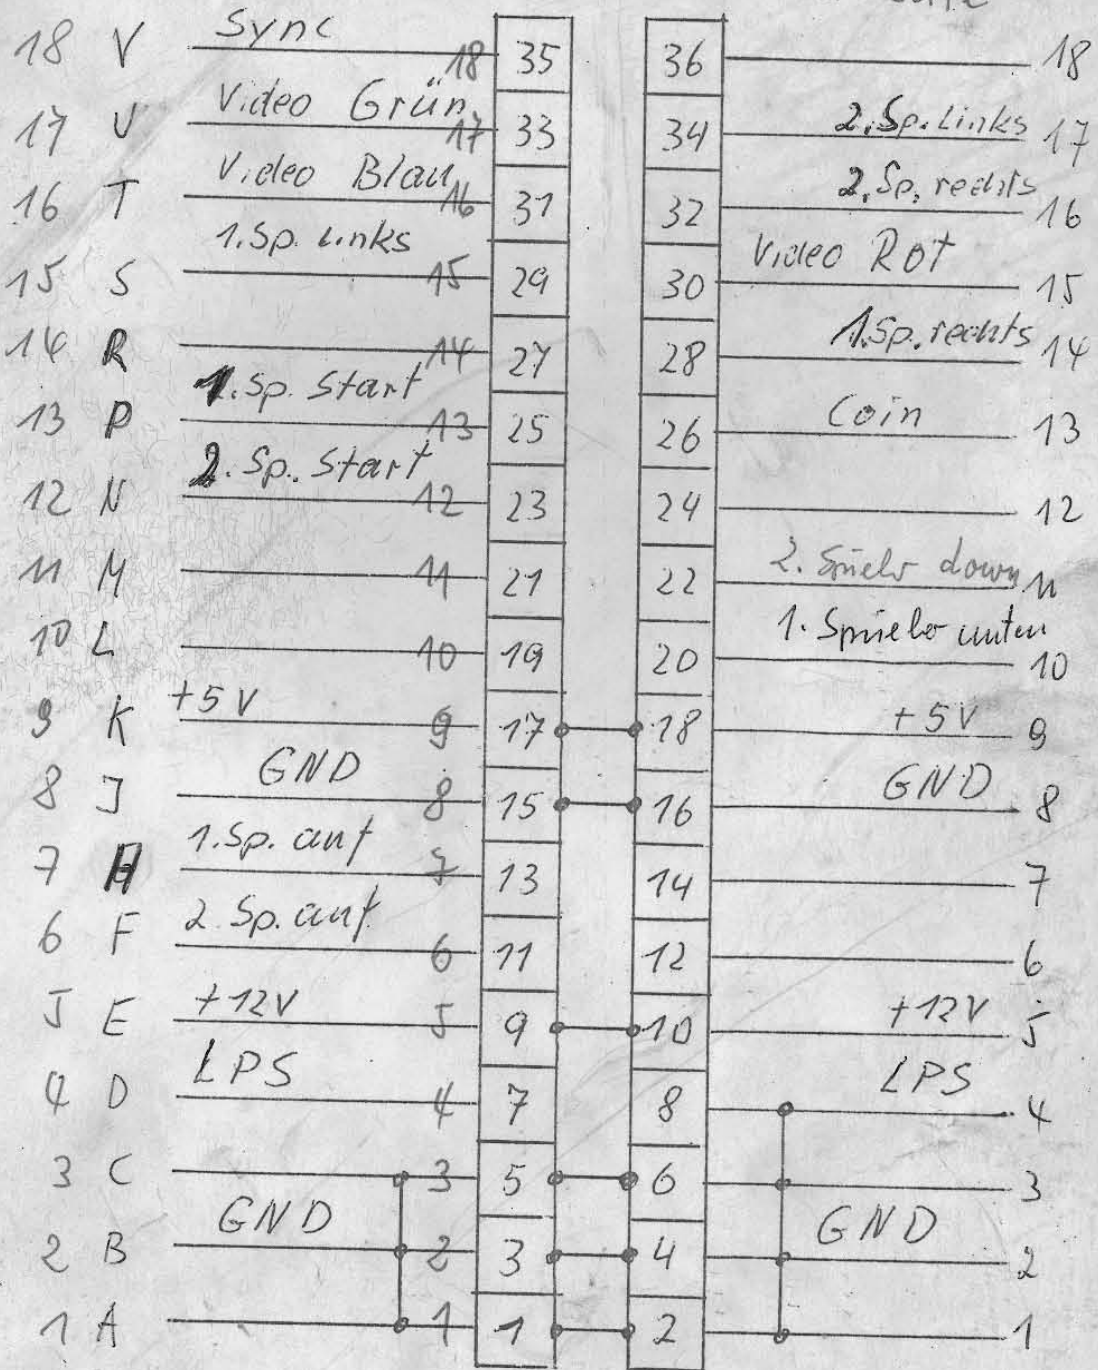 18 V Sync 18 35 36 18
17 U Video Grün 17 33 34 2.Sp. Links 17
16 T Video Blau 16 31 32 2.Sp. rechts 16
15 S 1.Sp. Links 15 29 30 Video Rot 15
14 R 14 27 28 1.Sp. rechts 14
13 P 1.Sp. Start 13 25 26 Coin 13
12 N 2.Sp. Start 12 23 24 12
11 M 11 21 22 2. Spieler down 11
10 L 10 19 20 1. Spieler unten 10
9 K +5V 9 17 18 +5V 9
8 J GND 8 15 16 GND 8
7 H 1.Sp. auf 7 13 14 7
6 F 2.Sp. auf 6 11 12 6
5 E +12V 5 9 10 +12V 5
4 D LPS 4 7 8 LPS 4
3 C 3 5 6 3
2 B GND 2 3 4 GND 2
1 A 1 1 2 1